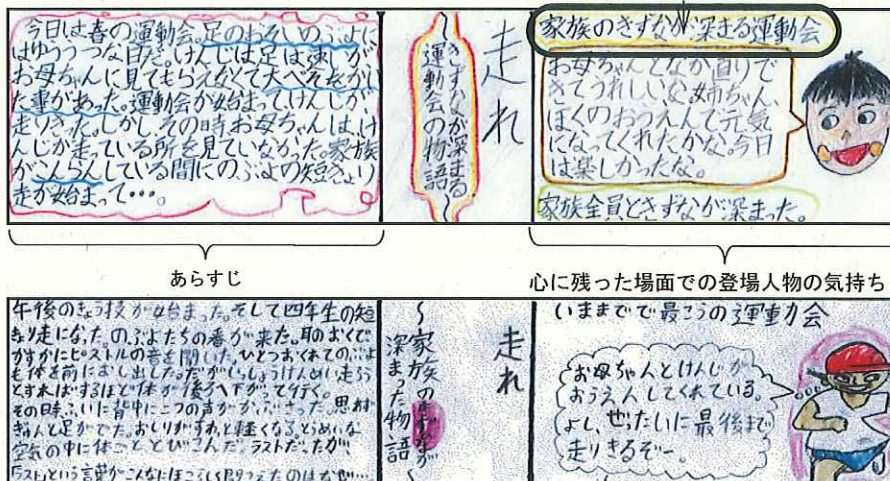 今日は春の運動会。足のおそいのぶよに
はゆううつな日だ。けんじは足は速いが
お母ちゃんに見てもらえなくて大べそをかい
た事があった。運動会が始まってけんじが
走りきった。しかし、その時お母ちゃんは、け
んじが走っている所を見ていなかった。家族
がこんらんしている間にのぶよの短きょり
走が始まって・・・。
走れ
〜きずなが深まる
運動会の物語〜
家族のきずなが深まる運動会
お母ちゃんとなか直りで
きてうれしいな。姉ちゃん、
ぼくのおうえんで元気
になってくれたかな。今日
は楽しかったな。
家族全員ときずなが深まった。
あらすじ
心に残った場面での登場人物の気持ち
午後のきょう技が始まった。そして四年生の短
きょり走になった。のぶよたちの番が来た。耳のおくで
かすかにピストルの音を聞いた。ひとつおくれてのぶよ
も体を前におし出した。だがいっしょうけんめい走ろう
とすればするほど体が後ろへ下がって行く。
その時ふいに背中に二つの声がかぶさった。思わず
きゅんと足がでた。おしりがすわっと軽くなる。とうめいな
空気の中に体ごととびこんだ。ラストだったが、
「ラスト」という言葉がこんなにほこらしく
走れ
〜家族のきずなが
深まった物語〜
いままでで最こうの運動会
お母ちゃんとけんじが
おうえんしてくれている。
よし、ぜったいに最後まで
走りきるぞー。